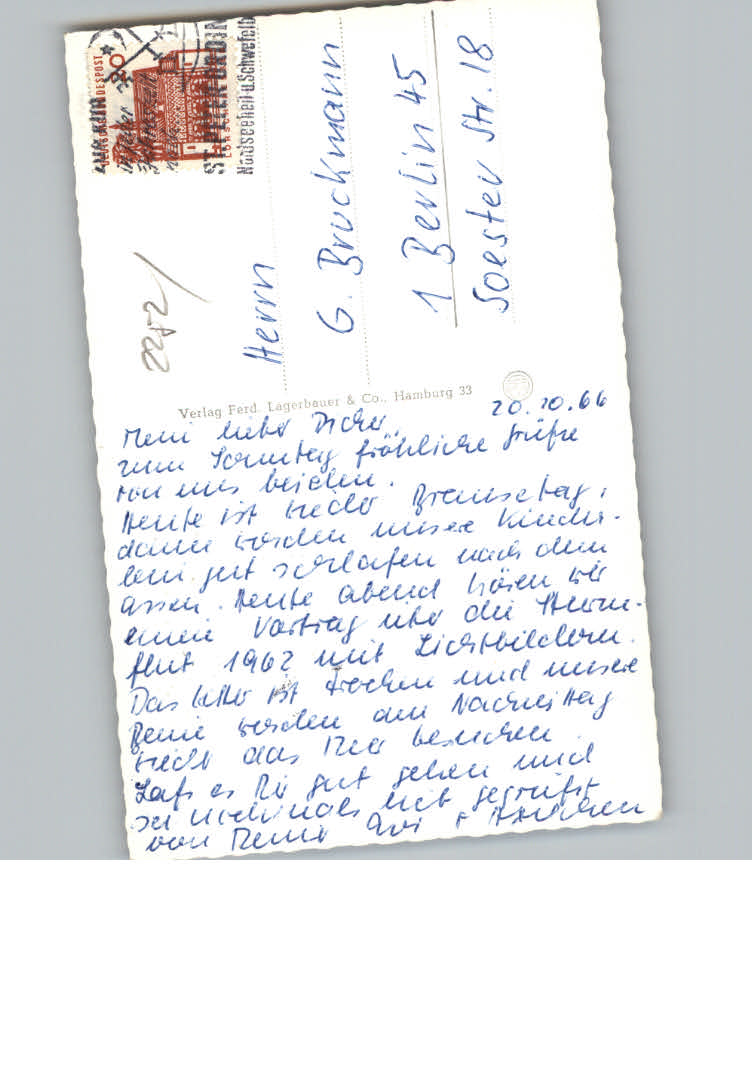 DEUTSCHE BUNDESPOST
20
LORSCH
ZUR KUR
ST. PETER-ORDING
Nordseeheil- u. Schwefelb
2252
Herrn
G. Bruckmann
1 Berlin 45
Soester Str. 18
Verlag Ferd. Lagerbauer & Co., Hamburg 33
20.10.66
Mein lieber
zum Sonntag fröhliche Grüße
von uns beiden.
Heute ist wieder
dann werden unsere Kinder-
lein gut schlafen nach dem
Essen. Heute abend hören wir
einen Vortrag über die Sturm-
flut 1962 mit Lichtbildern.
Das Wetter ist trocken und unsere
Beine werden am Nachmittag
wieder das Meer besuchen.
Laß es Dir gut gehen und
sei vielmals lieb gegrüßt
von Deiner